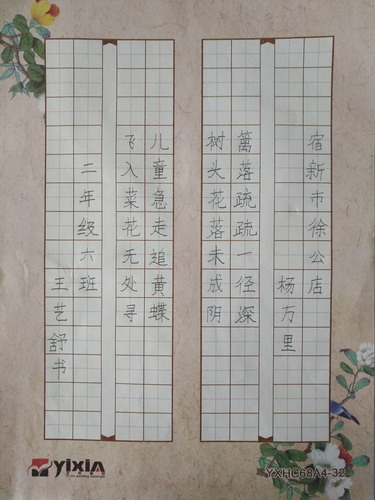 宿新市徐公店
杨万里
篱落疏疏一径深
树头花落未成阴
儿童急走追黄蝶
飞入菜花无处寻
二年级六班
王艺舒书
yixin
YXHC68A4-32